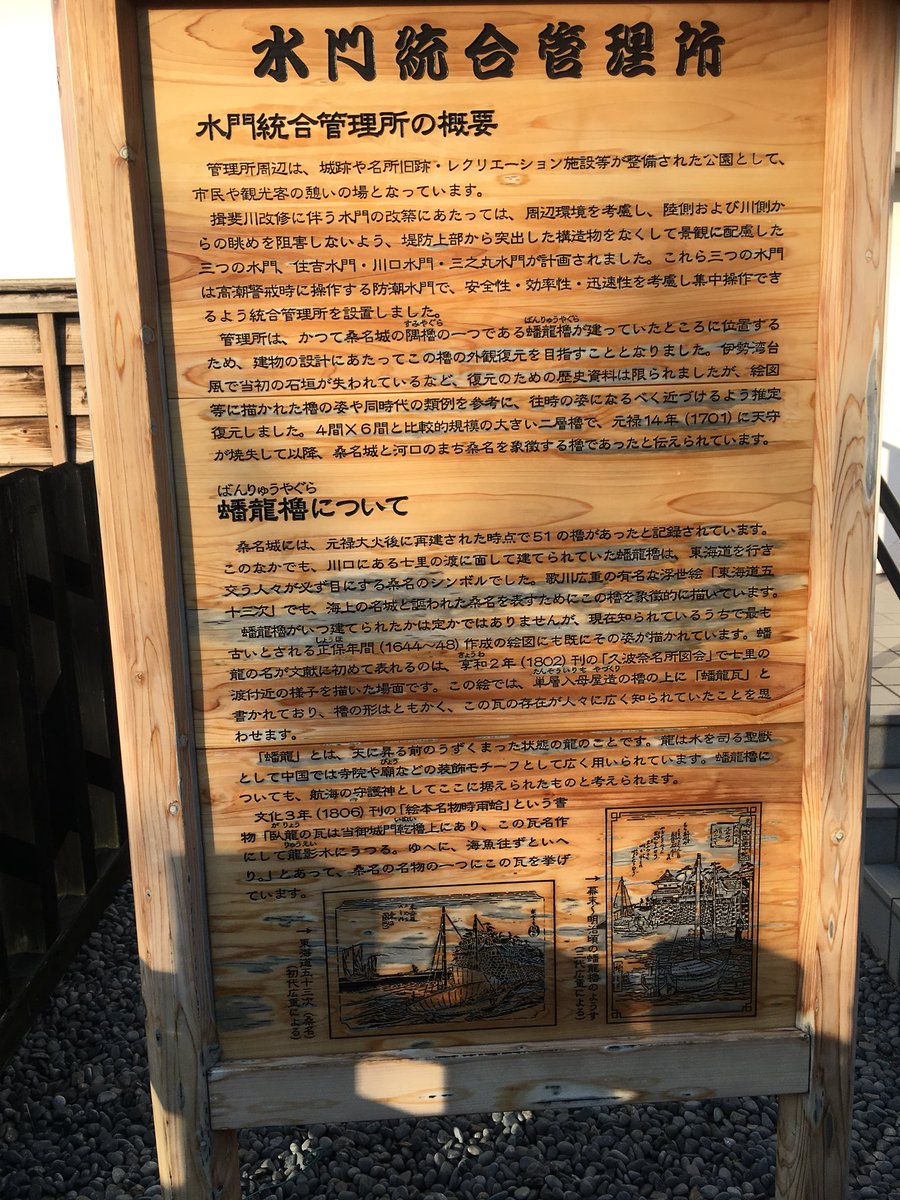 水門統合管理所
水門統合管理所の概要
管理所周辺は、城跡や名所旧跡・レクリエーション施設等が整備された公園として、
市民や観光客の憩いの場となっています。
揖斐川改修に伴う水門の改築にあたっては、周辺環境を考慮し、陸側および川側か
らの眺めを阻害しないよう、堤防上部から突出した構造物をなくして景観に配慮した
三つの水門、住吉水門・川口水門・三之丸水門が計画されました。これら三つの水門
は高潮警戒時に操作する防潮水門で、安全性・効率性・迅速性を考慮し集中操作でき
るよう統合管理所を設置しました。
すみやぐら ばんりゅうやぐら
管理所は、かつて桑名城の隅櫓の一つである蟠龍櫓が建っていたところに位置する
ため、建物の設計にあたってこの櫓の外観復元を目指すこととなりました。伊勢湾台
風で当初の石垣が失われているなど、復元のための歴史資料は限られましたが、絵図
等に描かれた櫓の姿や同時代の類例を参考に、往時の姿になるべく近づけるよう推定
復元しました。4間×6間と比較的規模の大きい二層櫓で、元禄14年(1701)に天守
が焼失して以降、桑名城と河口のまち桑名を象徴する櫓であったと伝えられています。
ばんりゅうやぐら
蟠龍櫓について
桑名城には、元禄大火後に再建された時点で51の櫓があったと記録されています。
このなかでも、川口にある七里の渡に面して建てられていた蟠龍櫓は、東海道を行き
交う人々が必ず目にする桑名のシンボルでした。歌川広重の有名な浮世絵「東海道五
十三次」でも、海上の名城と謳われた桑名を表すためにこの櫓を象徴的に描いています。
蟠龍櫓がいつ建てられたかは定かではありませんが、現在知られているうちで最も
しょうほ
古いとされる正保年間(1644~48)作成の絵図にも既にその姿が描かれています。蟠
きょうわ
龍の名が文献に初めて表れるのは、享和2年(1802)刊の「久波奈名所図会」で七里の
たんそういりもやづくり
渡付近の様子を描いた場面です。この絵では、単層入母屋造の櫓の上に「蟠龍瓦」と
書かれており、櫓の形はともかく、この瓦の存在が人々に広く知られていたことを思
わせます。
「蟠龍」とは、天に昇る前のうずくまった状態の龍のことです。龍は水を司る聖獣
びょう
として中国では寺院や廟などの装飾モチーフとして広く用いられています。蟠龍櫓に
ついても、航海の守護神としてここに据えられたものと考えられます。
文化3年(1806)刊の「絵本名物時雨蛤」という書
がりょう いぬい
物「臥龍の瓦は当御城門乾櫓上にあり、この瓦名作
りゅうえい
にして龍影水にうつる。ゆへに、海魚往ずといへ
り。」とあって、桑名の名物の一つにこの瓦を挙げ
ています。
→幕末・明治頃の蟠龍櫓のようす
(二代広重による)
→東海道五十三次(桑名)
(初代広重による)